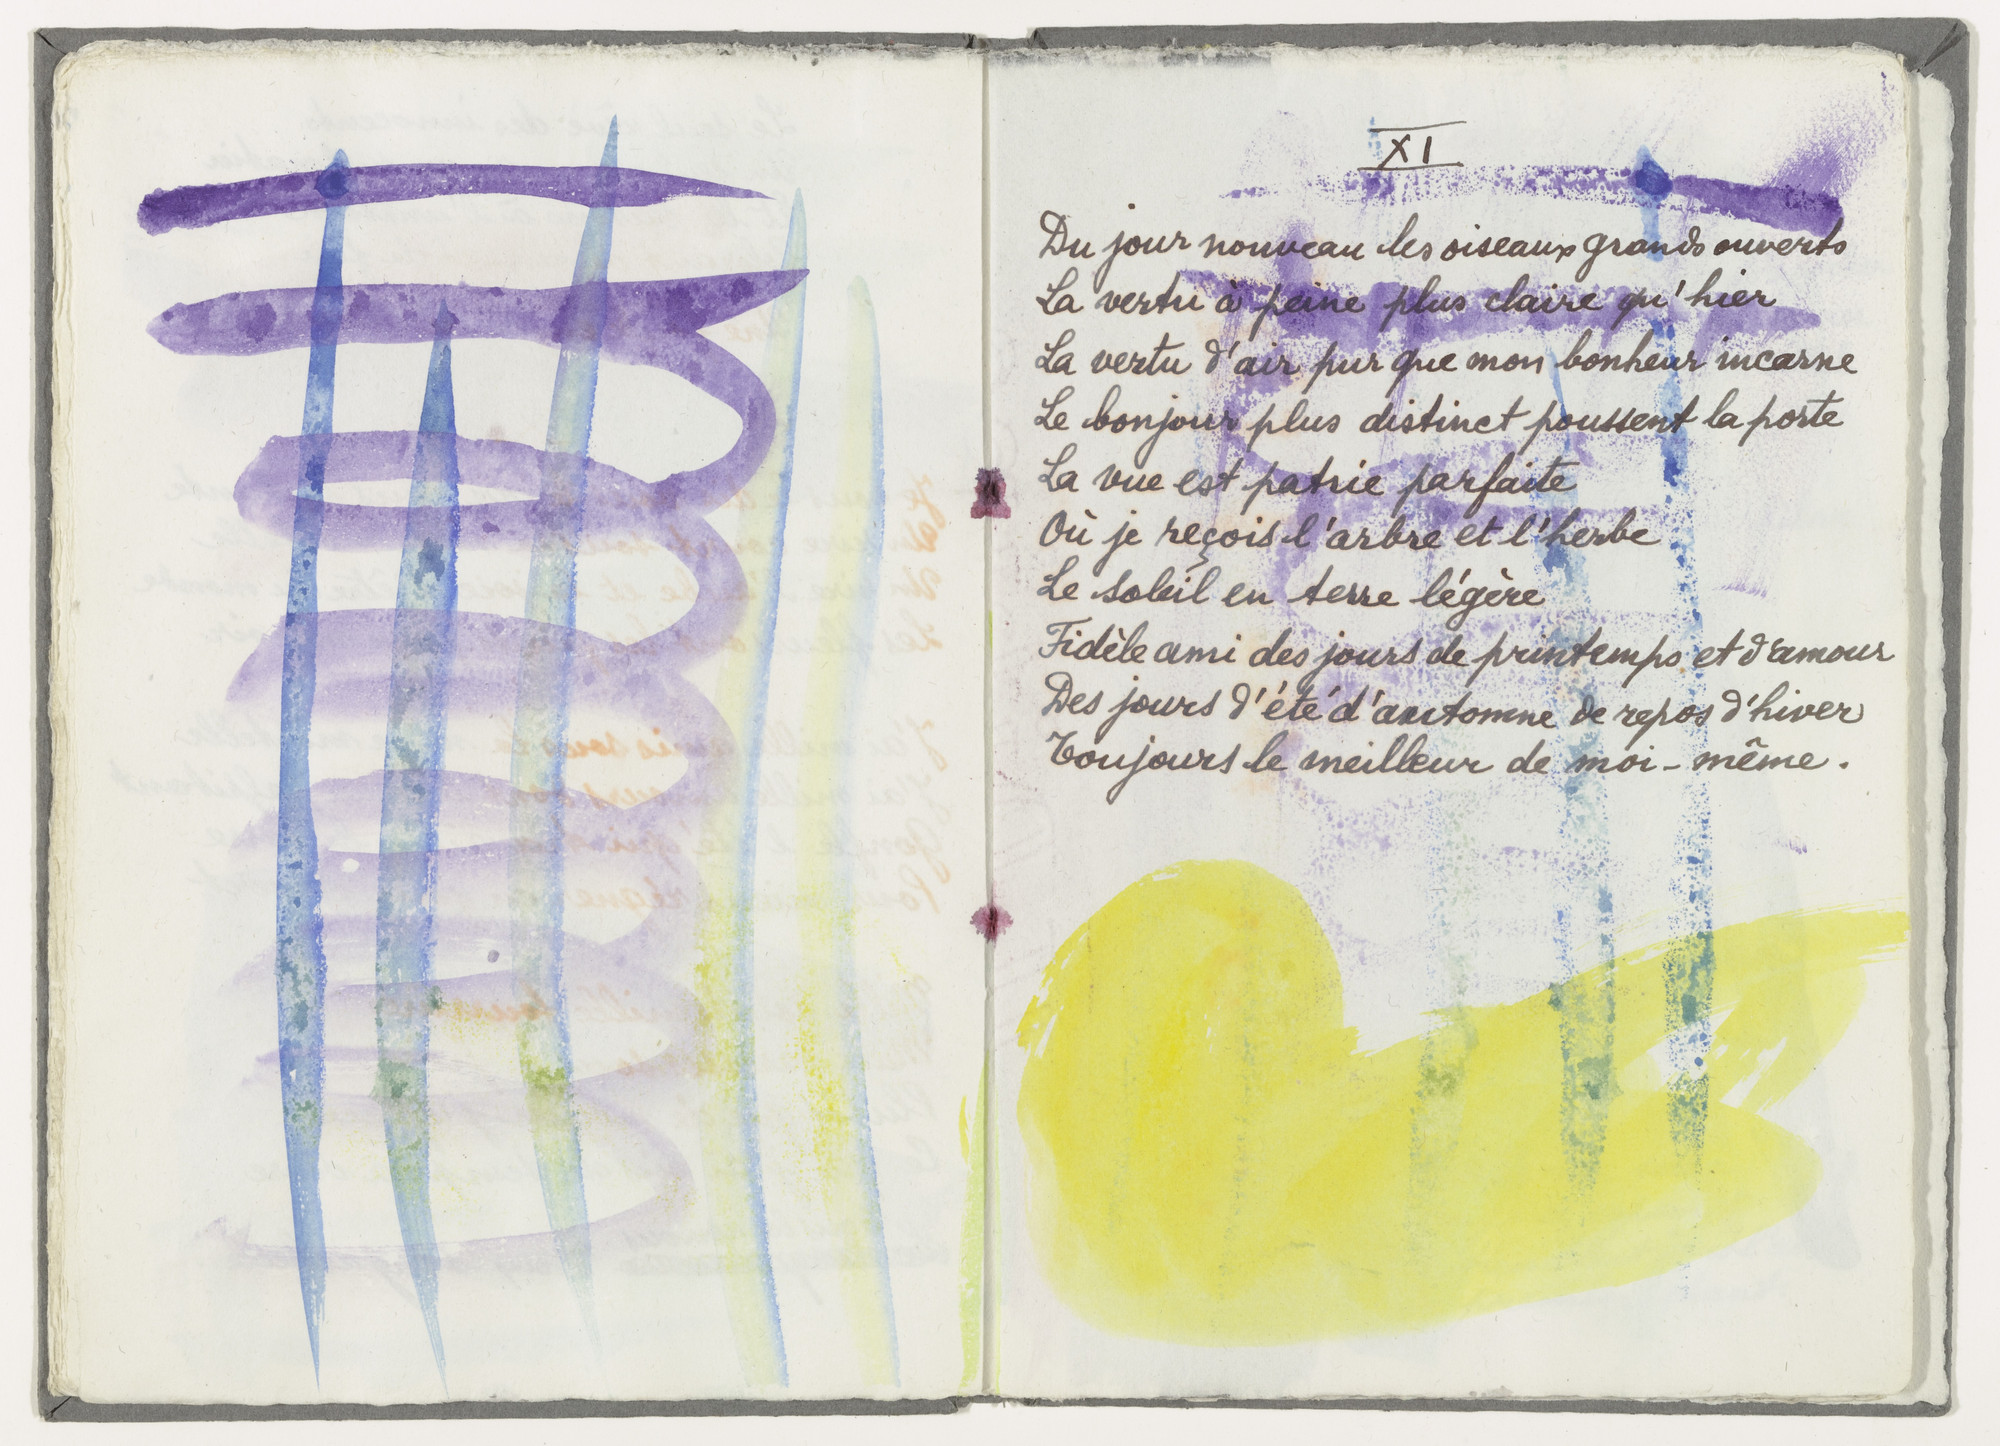 XI
Du jour nouveau les oiseaux grands ouverts
La vertu à peine plus claire qu'hier
La vertu d'air pur que mon bonheur incarne
Le bonjour plus distinct poussent la porte
La vue est patrie parfaite
Où je reçois l'arbre et l'herbe
Le soleil en terre légère
Fidèle ami des jours de printemps et d'amour
Des jours d'été d'automne de repos d'hiver
Toujours le meilleur de moi-même.